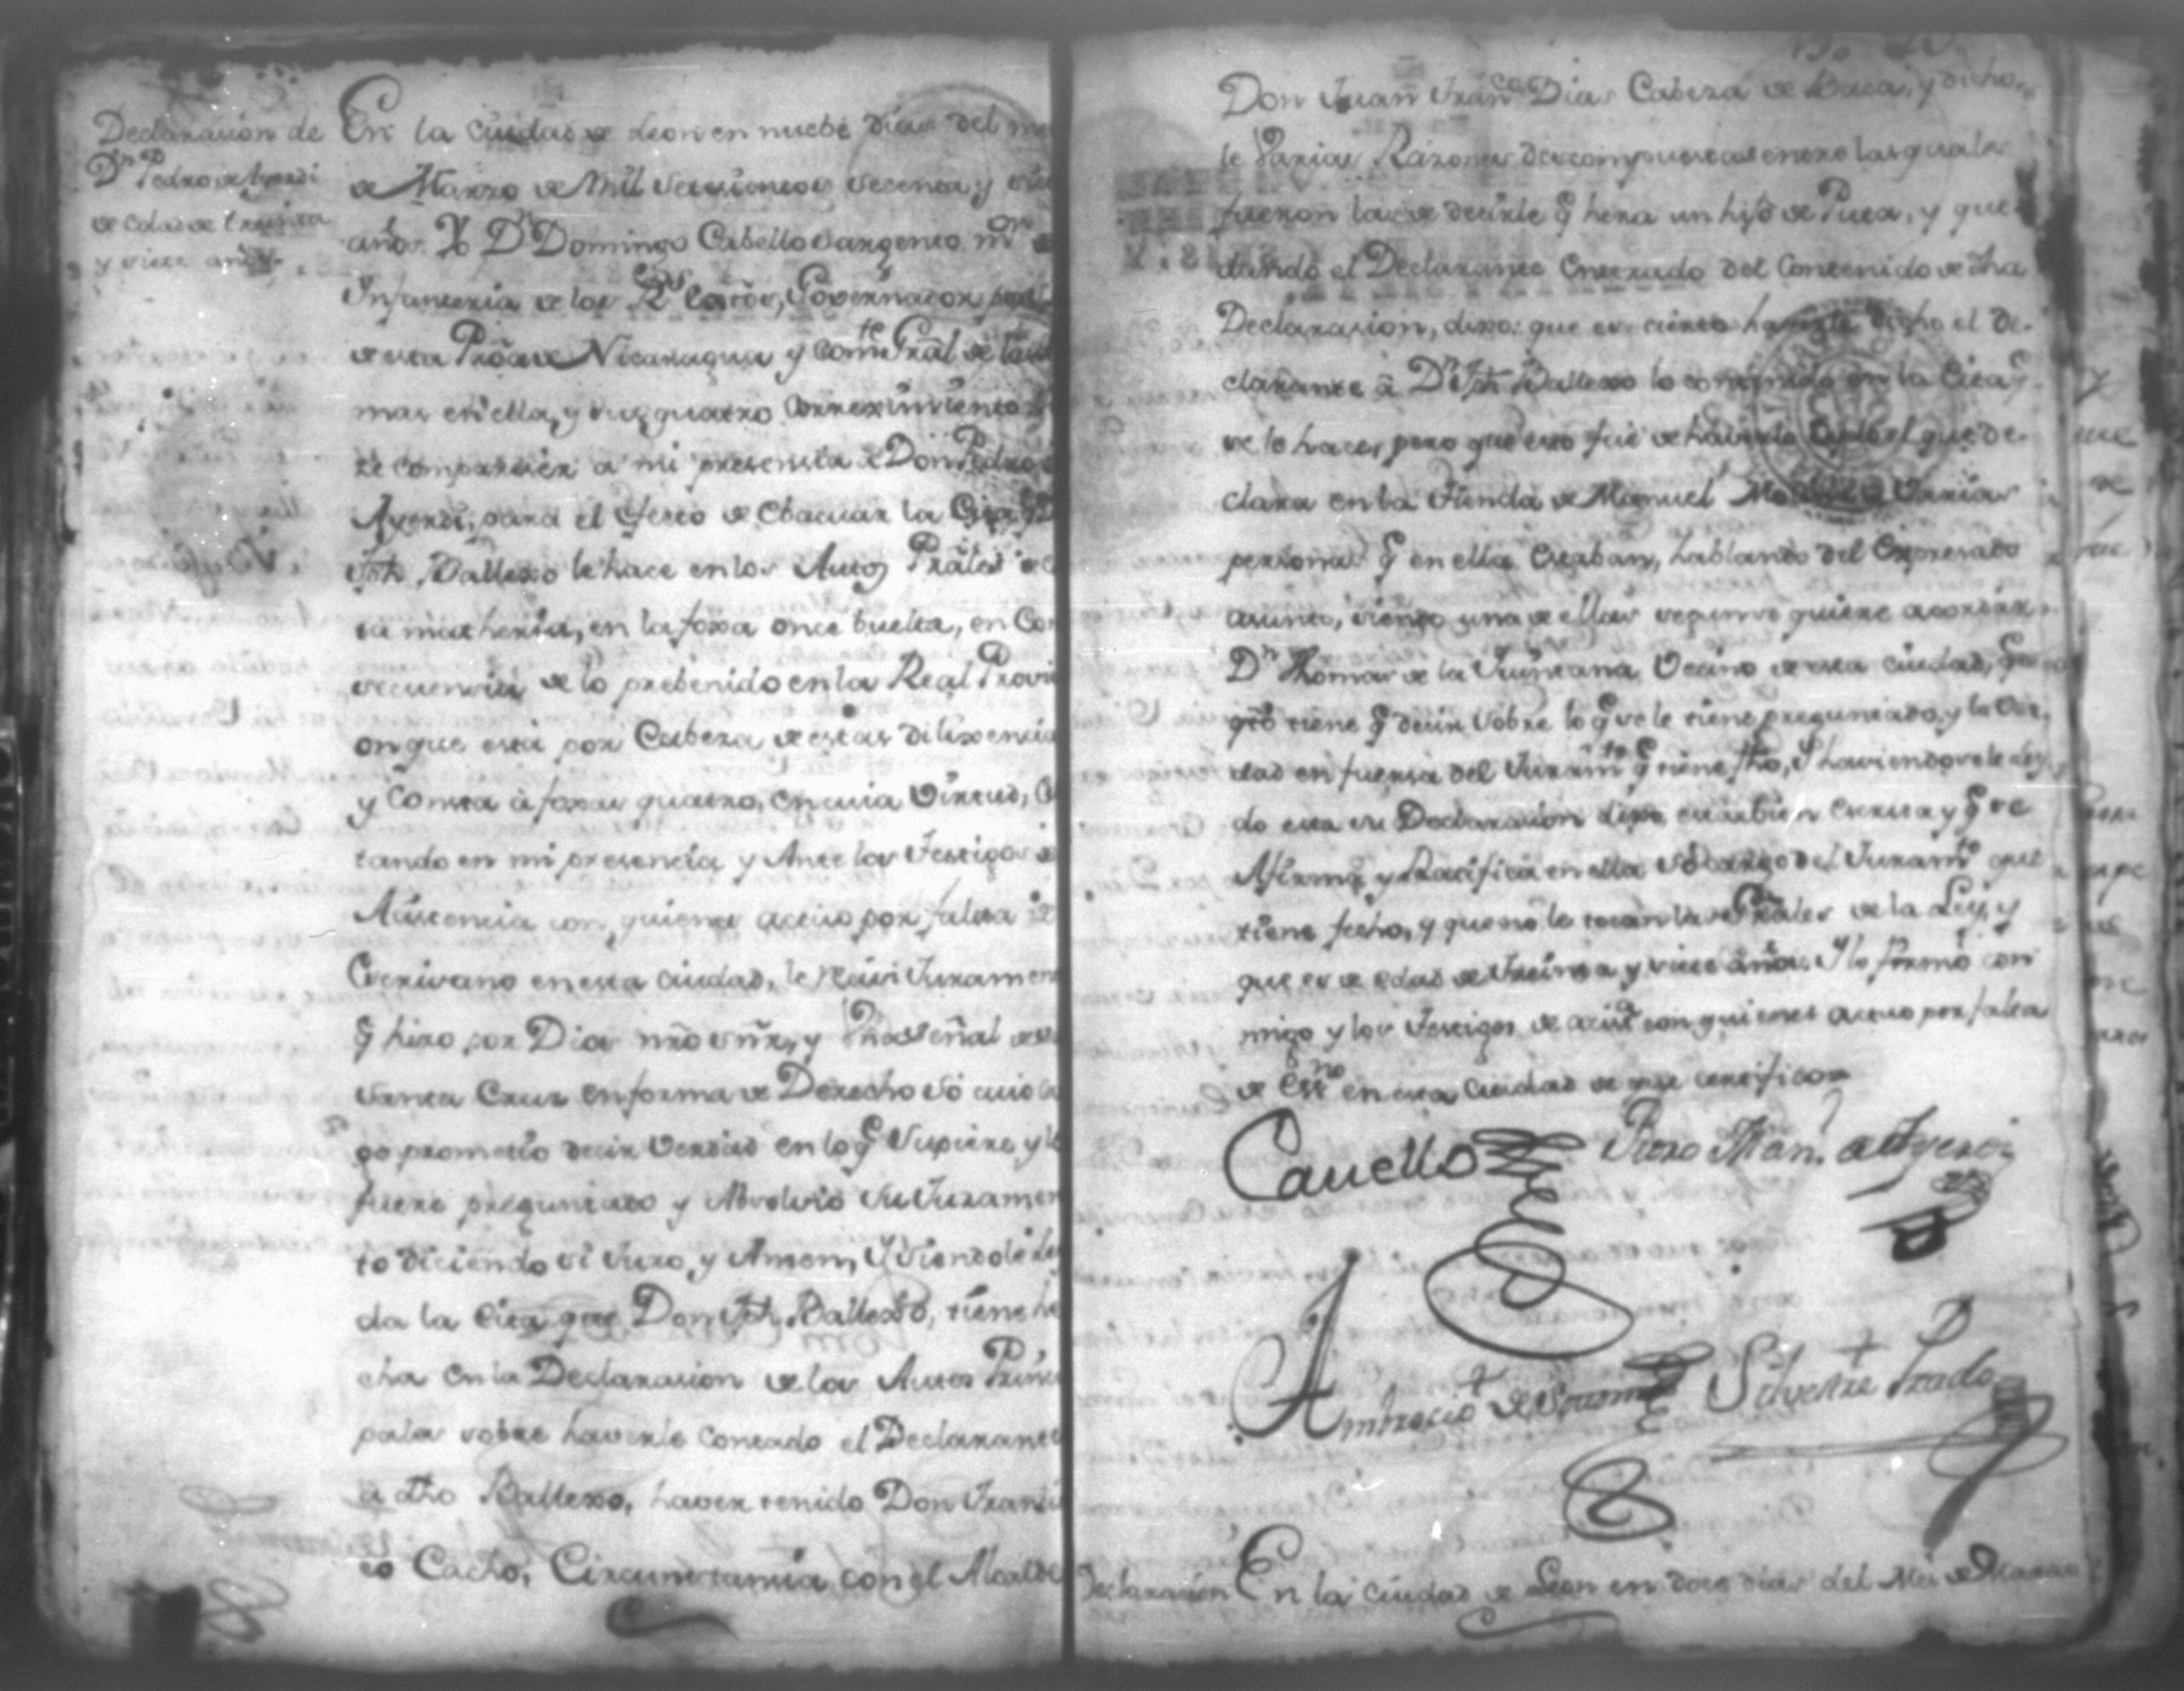 Declarasion de
Dn Pedro de Ayerdi
de edad de treinta
y siete años.
En la Ciudad de Leon en nuebe dias del me
de Marzo de Mil Setesientos Setenta, y
años. Yo Dn Domingo Cabello Sargento mr
Infanteria de los Rs Exctos, Governador
de esta Proã de Nicaragua y Comte Gral de las
mas en ella, y sus quatro Correximientos
se compareser a mi presensia a Don Pedro
Ayerdi, para el efecto de Ebacuar la Cita q D
Jph Vallexo le hace en los Autos Prales
ta matheria, en la foxa once buelta, en Con
secuensia de lo prebenido en la Real Provi
on que está por Cabeza de estas dilixencia
y Consta á foxas quatro, en cuia Virtud,
tando en mi presencia y Ante los Testigos
Asistencia con quienes actuo por falta
Escrivano en esta Ciudad, le reciví Juramen
q hizo por Dios nro Sñr, y Una Señal de
Santa Cruz en forma de Derecho Só cuio
go prometió decir Verdad en lo q Supiere y le
fuere preguntado y Absolvió Su Juramen
to diciendo Si Juro, y Amem, Y Siendole
da la Cita que Don Jph Vallexo, tiene he
cha en la Declarasion de los Autos Prinsi
pales sobre haverle Contado el Declarante
a dho Vallexo, haver tenido Don Fransis
co Cacho, Circunstansia con el Alcalde
Don Juan Franco Dias Cabeza de Baca, y dicho
le Varias Razones descompuestas entre las quales
fueron las de decirle q hera un hijo de Puta, y que
dando el Declarante Enterado del Contenido de dha
Declarasion, dixo: que es cierto haverle dicho el De-
clarante â Dn Jph Vallexo lo contenido en la Cita q
se le hace, pero que eso fué de haverlo oydo el que de-
clara en la Tienda de Manuel Varias
personas q en ella Estaban, hablando del Expresado
asunto, siendo una de ellas segun se quiere acordar
Dn Thomas de la Quintana Vecino de esta Ciudad, q
qto tiene q decir Sobre lo q se le tiene preguntado, y la Ver-
dad en fuersa del Juramto q tiene fho, Y haviendosele ley-
do esta su Declarasion dixo está bien Escrita y q se
Afirma, y Ratifica en ella Só cargo del Juramto que
tiene fecho, y que no le tocan las Grales de la Ley, y
que es de edad de Treinta y siete años. Y lo firmó con
migo y los Testigos de asista con quienes actuo por falta
de Essno en esta Ciudad de que certifico
Cauello Pedro Man. de Ayerdi
Ambrocio de Silvestre Prado
Declarasion En la Ciudad de Leon en doce dias del Mes de Marzo